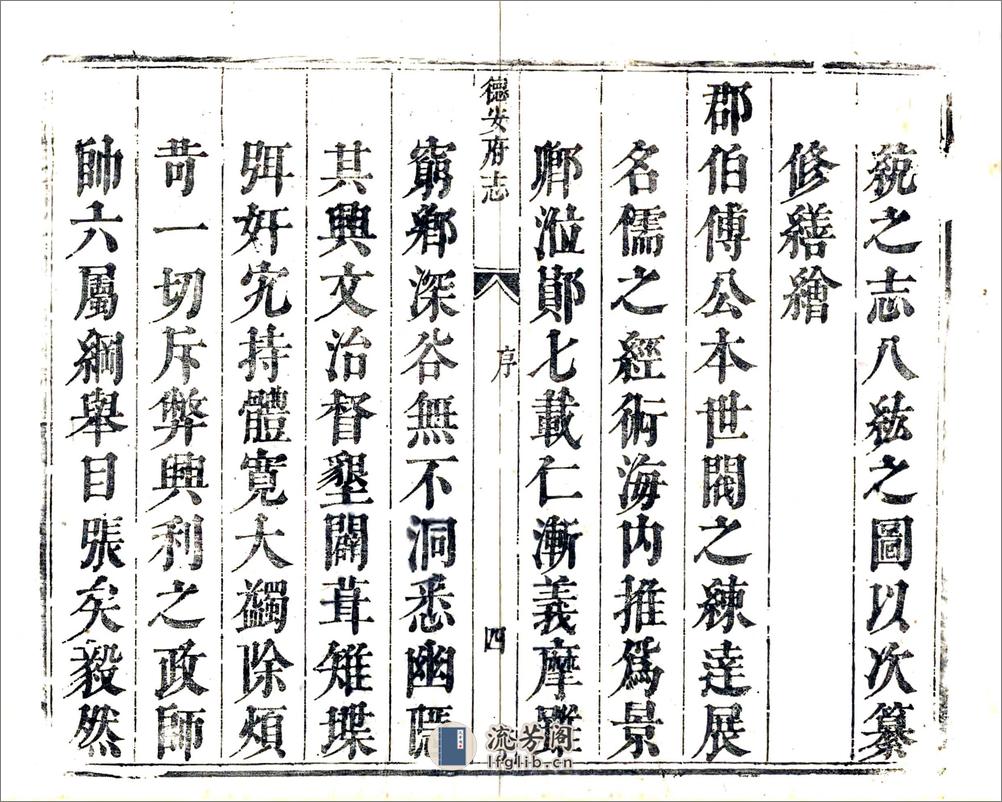 統之志八紘之圖以次纂
修繕繪
郡伯傅公本世閥之練達展
名儒之經術海内推爲景
卿涖鄖七載仁漸義摩雖
德安府志 序 四
窮鄉深谷無不洞悉幽隱
其興文治督墾闢葺雉堞
弭奸宄持體寬大蠲除煩
苛一切斥弊興利之政師
帥六屬綱舉目張矣毅然
流芳阁
lfglib.cn